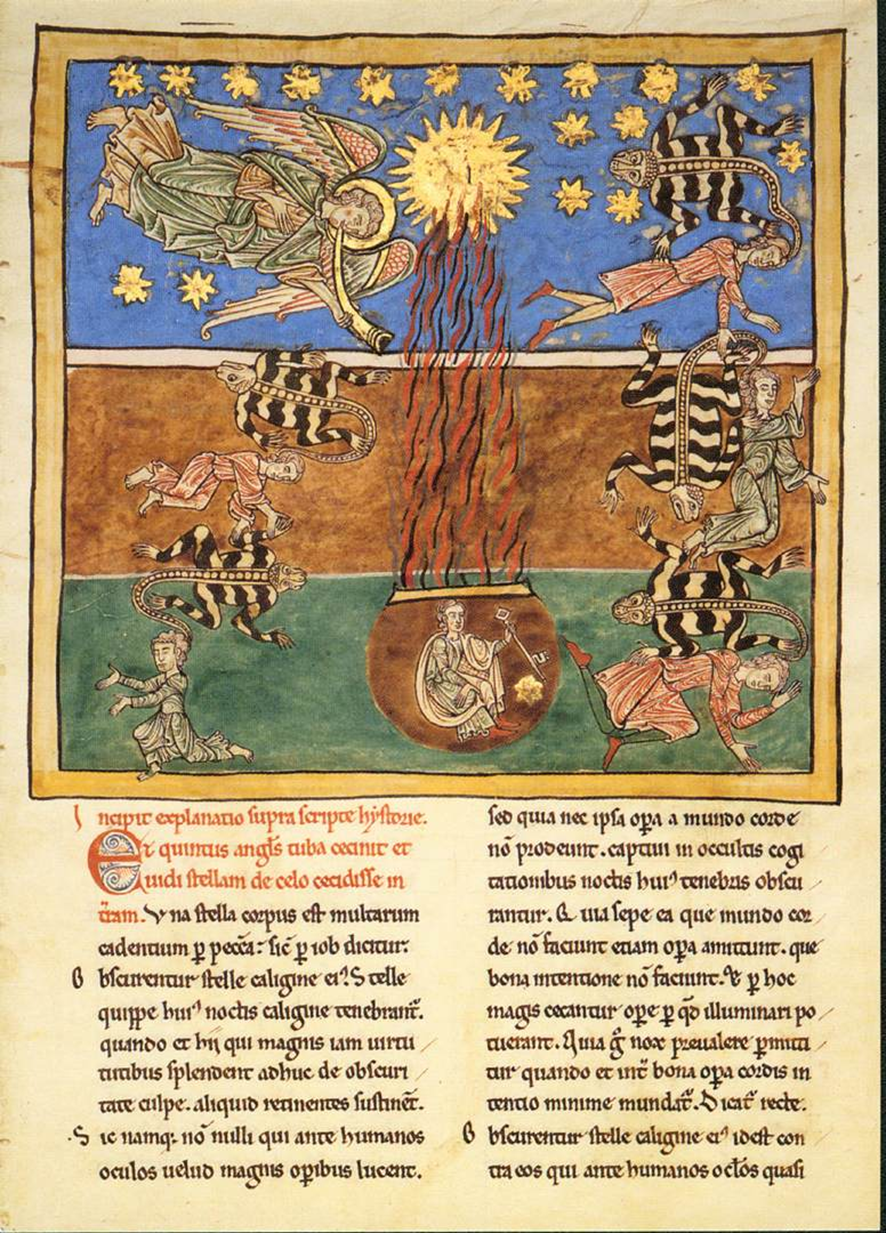 Incipit explanatio supra scripte hystorie.
Et quintus angl̃s tuba cecinit et
uidi stellam de celo cecidisse in
t̃ram. Vna stella corpus est multarum
cadentium ꝑ pecc̃a: sic̃ ꝑ iob dicitur:
Obscurentur stelle caligine ei᾽. Stelle
quippe hui᾽ noctis caligine tenebrant̃.
quando et hij qui magnis iam uirtu
tutibus splendent adhuc de obscuri
tate culpe. aliquid retinentes sustinẽt.
Sic namq; nõ nulli qui ante humanos
oculos uelud magnis oꝑibus lucent.
sed quia nec ipsa oꝑa a mundo corde
nõ prodeunt. captiui in occultis cogi
tationibus noctis hui᾽ tenebris obscu
rantur. Quia sepe ea que mundo cor
de nõ faciunt etiam oꝑa amittunt. que
bona intentione nõ faciunt. Et ꝑ hoc
magis cecantur oꝑe ꝑ qd̃ illuminari po
tuerant. Quia g̃ nox preualere ꝑmitti
tur quando et int̃ bona oꝑa cordis in
tentio minime mundat̃. Dicat̃ recte.
Obscurentur stelle caligine ei᾽ idest con
tra eos qui ante humanos oc̃los quasi